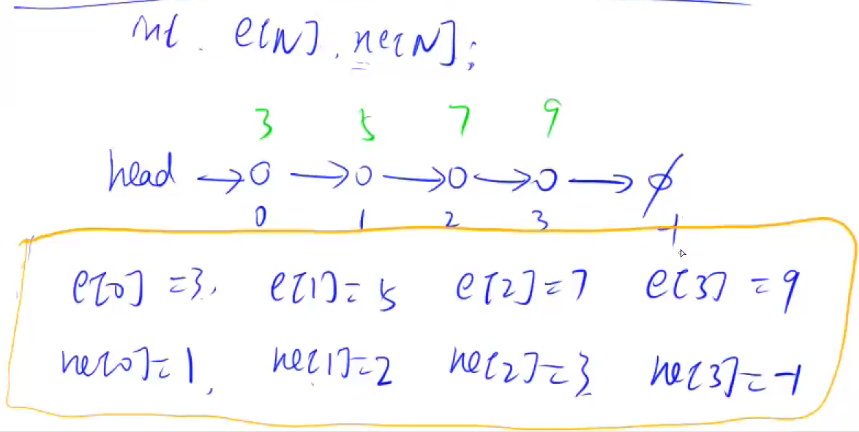 int e[N], ne[N];
3 5 7 9
head → 0 → 0 → 0 → 0 → ∅
0 1 2 3 -1
e[0]=3, e[1]=5 e[2]=7 e[3]=9
ne[0]=1, ne[1]=2 ne[2]=3 ne[3]=-1